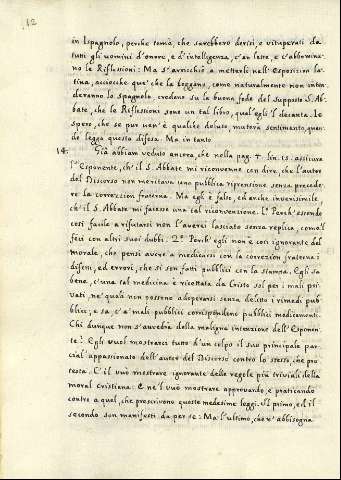 12
in Ispagnolo, perche temà, che sarebbero derisi, e vituperati da
tutti gli uomini d'onore, e d'intelligenza, e'an letto, e l'abbomina
no le Riflessioni: Ma s'arrischiò a metterli nell'Esposizion la-
tina, acciocche que' che la leggono, come naturalmente non inten-
deranno lo spagnolo, credano su la buona fede del supposto S. Ab-
bate, che le Riflessioni sono un tal libro, qual'egli 'l decanta. Io
spero, che se pur ven'è qualche deluso, muterà sentimento, quan-
do legga questa difesa. Ma in tanto
14. Già abbiam veduto ancora, che nella pag. 7 lin. 15. assicura
l'Esponente, ch'il S. Abbate mi riconvenne con dire, che l'autor
del Discorso non meritava una pubblica riprensione senza precede-
re la correzion fraterna. Ma egli è falso, ed anche inverisimile,
ch'il S. Abbate mi facesse una tal riconvenzione. 1.º Perch'essendo
così facile a rifiutarsi non l'averei lasciato senza replica, com'io
feci con altri suoi dubbi. 2.º Perch'egli non è così ignorante del
morale, che pensi aversi a medicarsi con la correzion fraterna i
difetti, ed errori, che si son fatti pubblici con la stampa. Egli sa
bene, ch'una tal medicina è ricettata da Cristo sol per i mali pri-
vati, ne' quali non possono adoperarsi senza delitto i rimedi pub-
blici; e sa, ch'a' mali pubblici corrispondono pubblici medicamenti.
Chi dunque non s'avvedrà della maligna intenzione dell'Esponen-
te? Egli vuol mostrarci tutto d'un colpo il suo principale par-
zial' appassionato dell'autor del Discorso contro lo stesso, che pro-
testa. E il vuò mostrare ignorante delle regole più triviali della
moral Cristiana. E ne'l vuò mostrare approvando, e praticando
contro a quel, che prescrivono queste medesime leggi. Il primo, ed il
secondo son manifesti da per se: Ma l'ultimo, che n'abbisogna